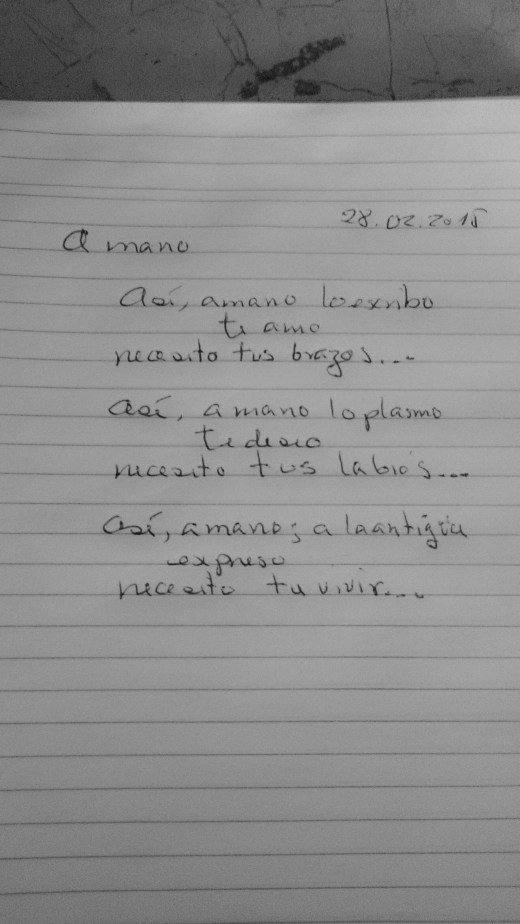 28.02.2015
A mano
Así, a mano lo escribo
te amo
necesito tus brazos...
Así, a mano lo plasmo
te deseo
necesito tus labios...
Así, a mano; a la antigua
expreso
necesito tu vivir...